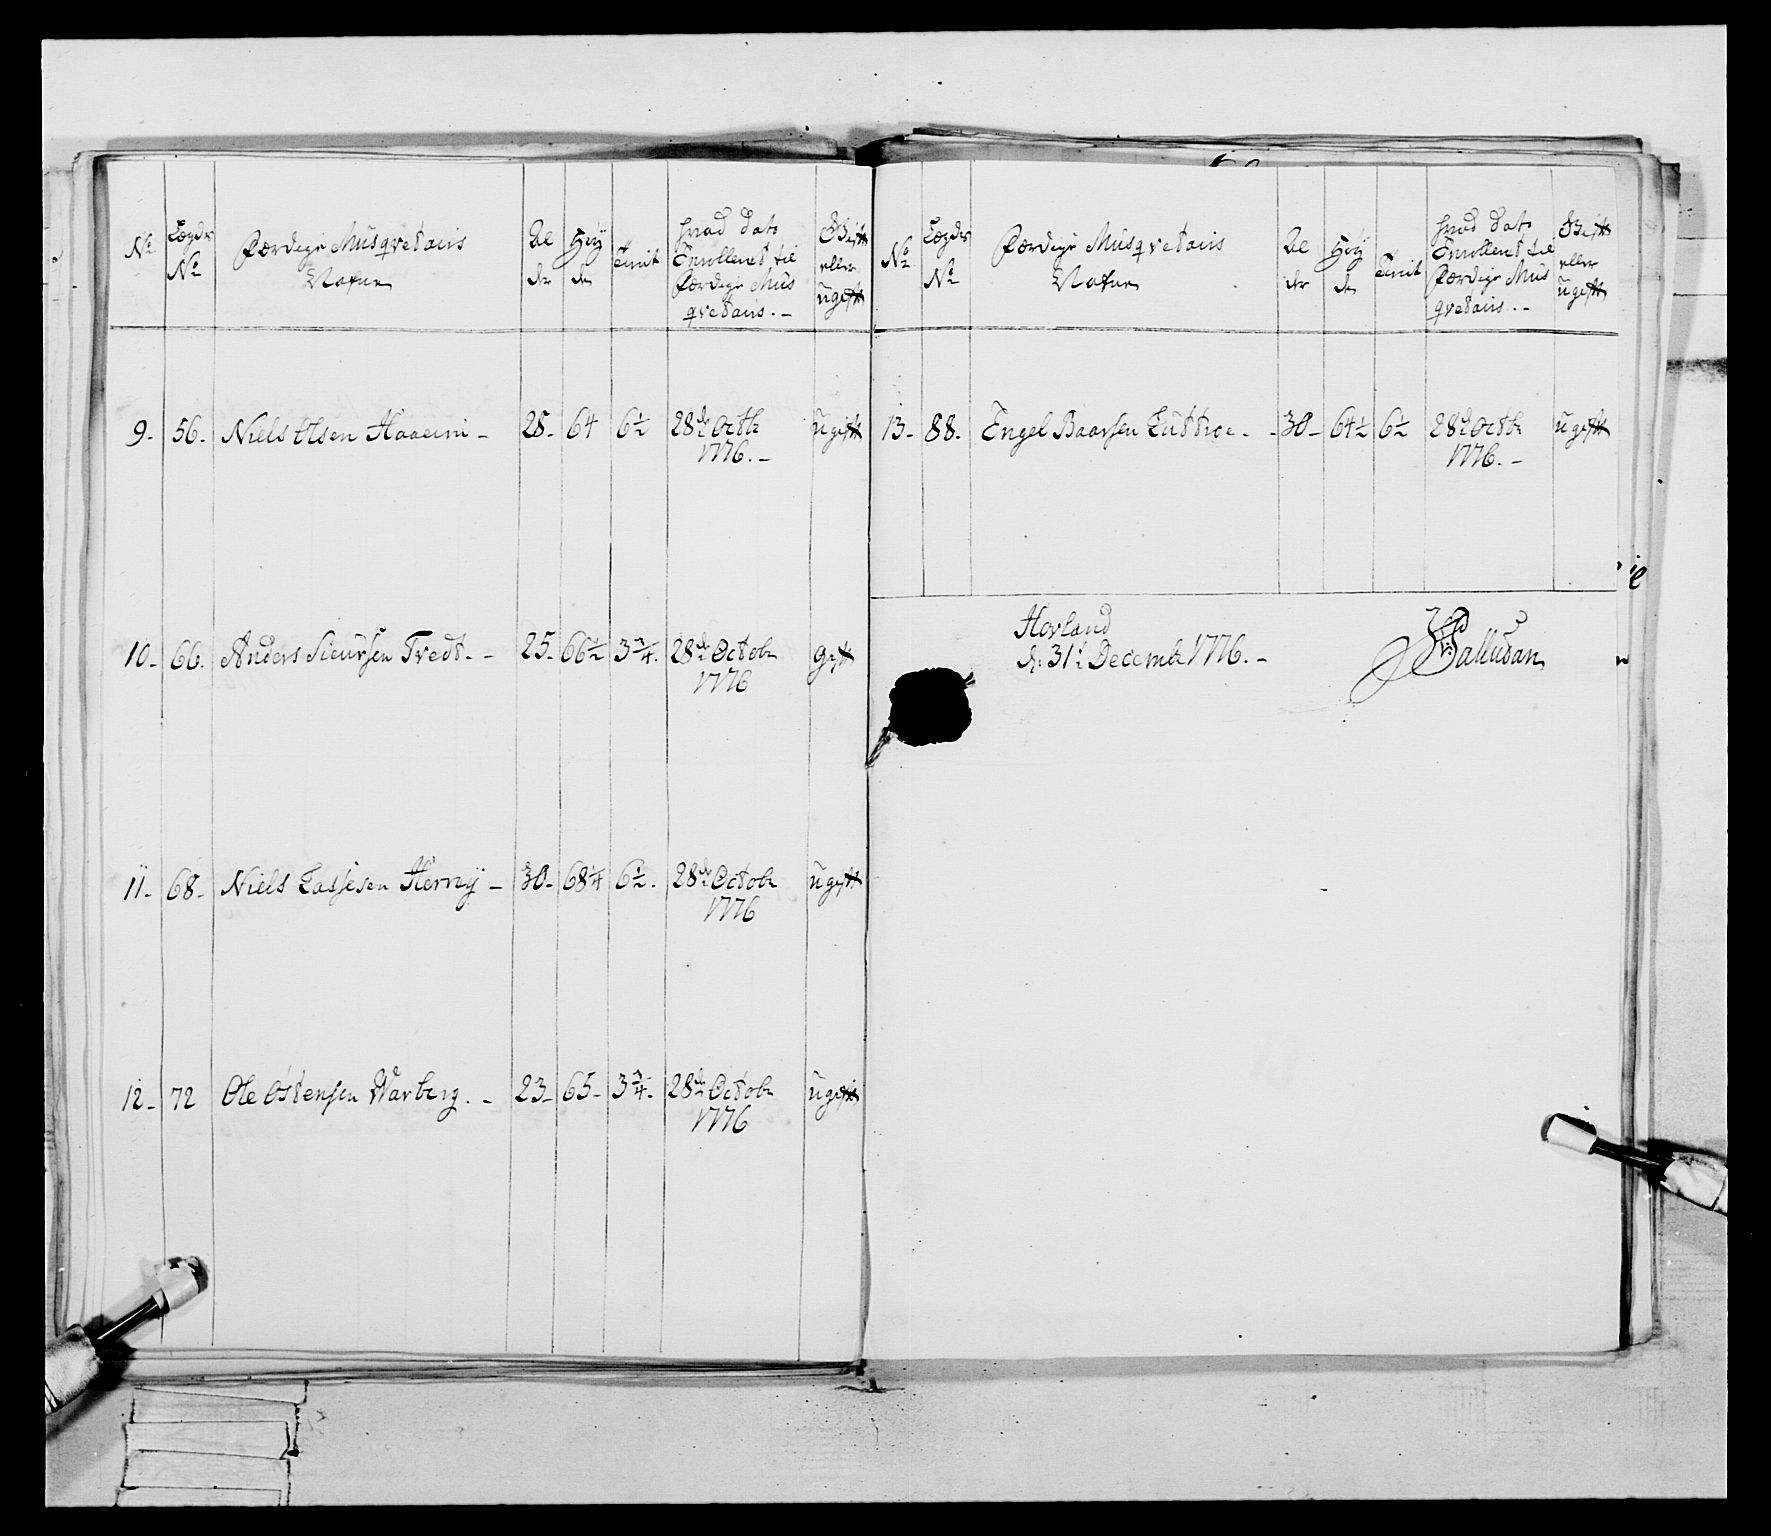 No Lægds No Færdige Musqvetairs Nafne Alder Høyde Termit hvad Dato Enrolleret til Færdige Musqvetairs.- Gift eller ugift
9- 56. Niels Olsen Haaeim - 28- 64 6½ 28de Octbr 1776.- ugift
10- 66. Anders Siursen Tvedt.- 25- 66½ 3¾. 28de Octobr 1776 gift
11- 68- Niels Lassesen Hernÿ - 30- 68¼ 6½. 28de Octobr 1776 ugift
12- 72 Ole Østensen Warberg.- 23- 65- 3¾. 28de Octobr 1776 ugift
No Lægds No Færdige Musqvetairs Nafne Alder Høyde Termit hvad Dato Enrolleret til Færdige Musqvetairs.- Gift eller ugift
13- 88. Engel Baarsen Luttroe - 30- 64½ 6½ 28de Octbr 1776.- ugift
Hovland
d: 31t Decembr 1776.-
Palludan